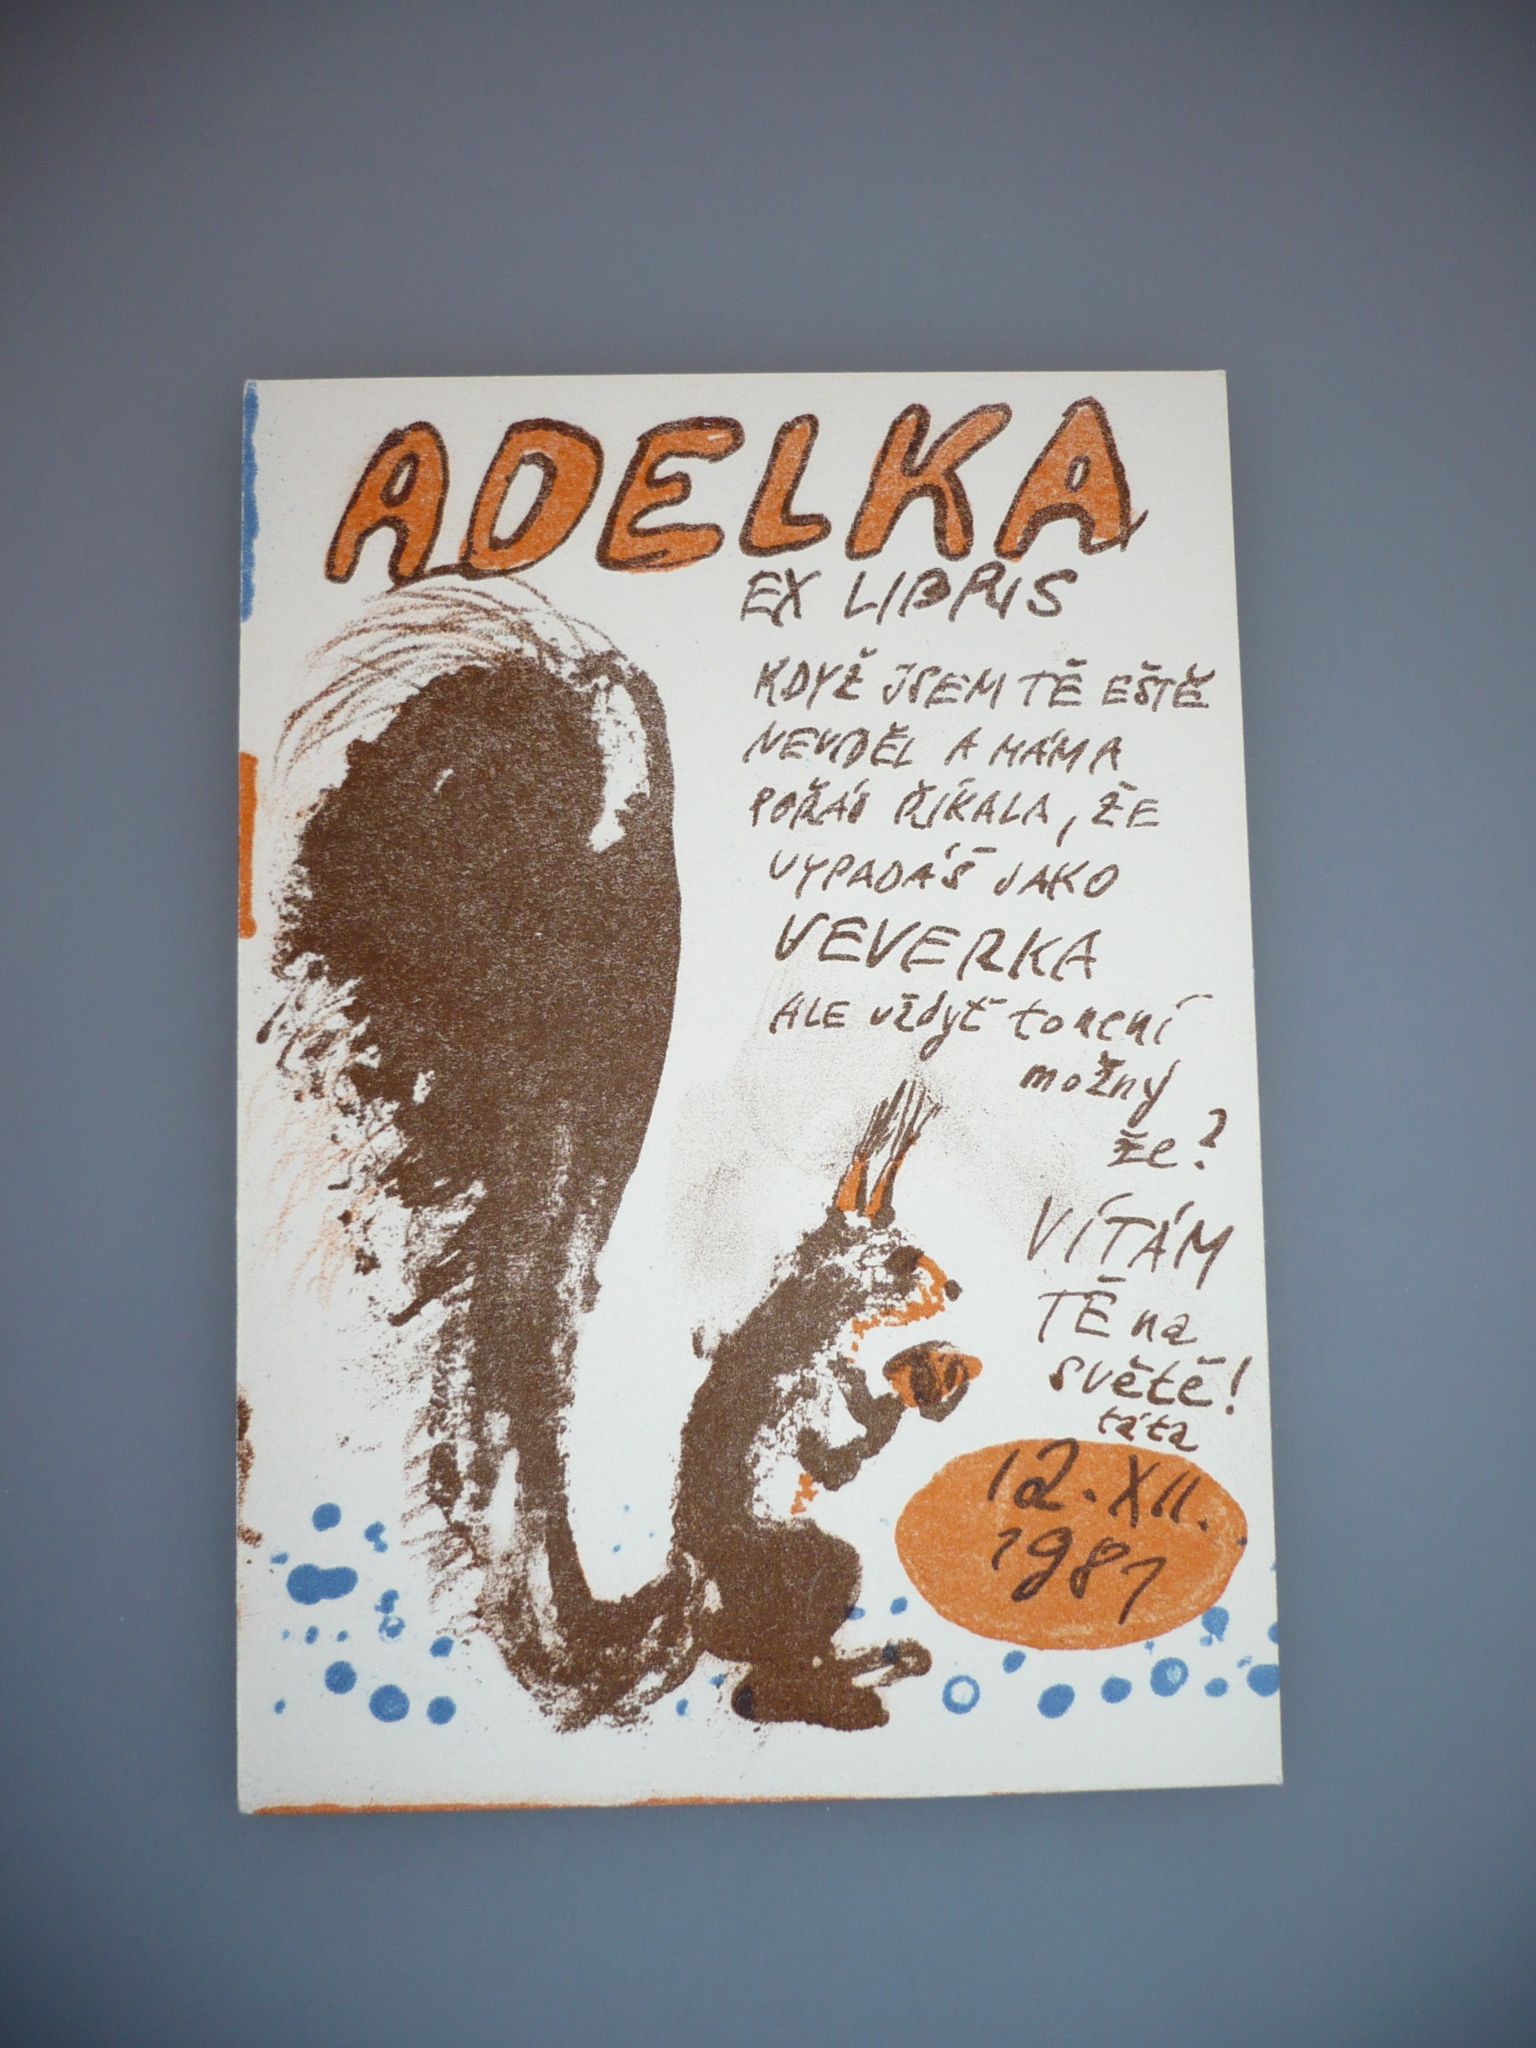 ADELKA
EX LIBRIS
KDYŽ JSEM TĚ EŠTĚ
NEVIDĚL A MÁMA
POŘÁD ŘÍKALA, ŽE
VYPADÁŠ JAKO
VEVERKA
ALE vždyť to není
možný
že?
VÍTÁM
TĚ na
světě!
táta
12. XII.
1981